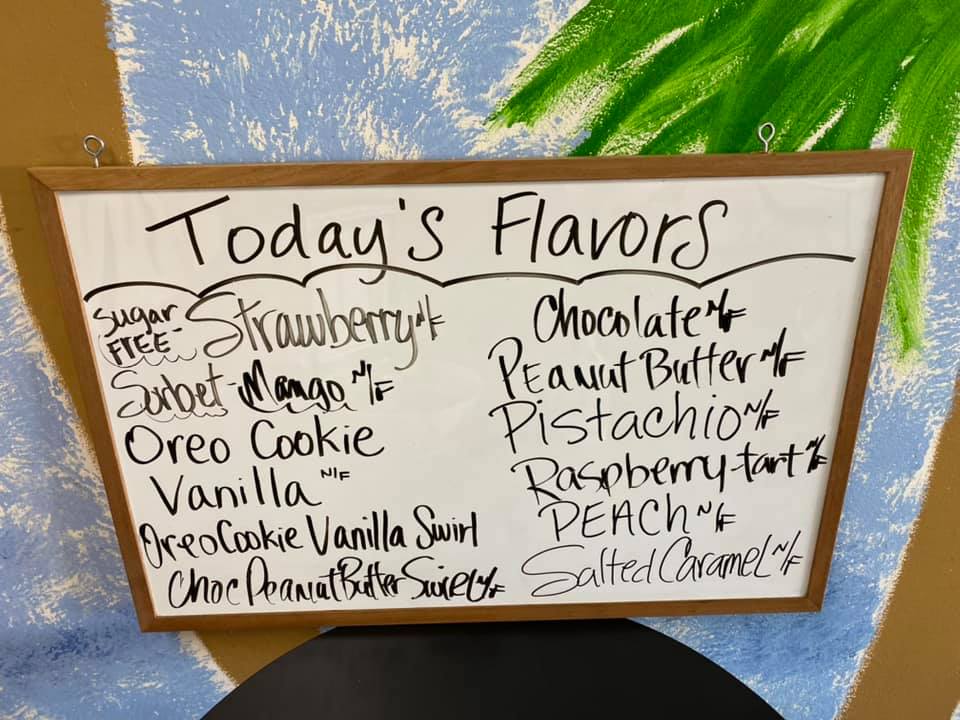 Today's Flavors
Sugar Free - Strawberry N/F
Sorbet - Mango N/F
Oreo Cookie
Vanilla N/F
Oreo Cookie Vanilla Swirl
Choc Peanut Butter Swirl N/F
Chocolate N/F
Peanut Butter N/F
Pistachio N/F
Raspberry tart N/F
PEACh N/F
Salted Caramel N/F